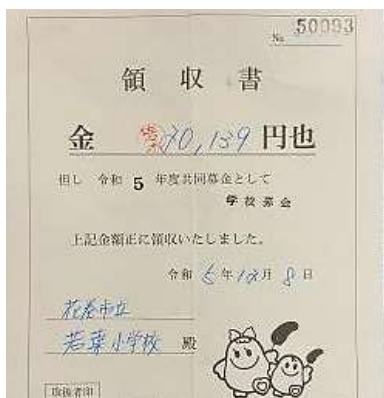 No. 50093
領収書
金 70,139 円也
担し 令和 5 年度共同募金として
学校募金
上記金額正に領収いたしました。
令和 5年12月 8日
花巻市立
若葉小学校 殿
取扱者印